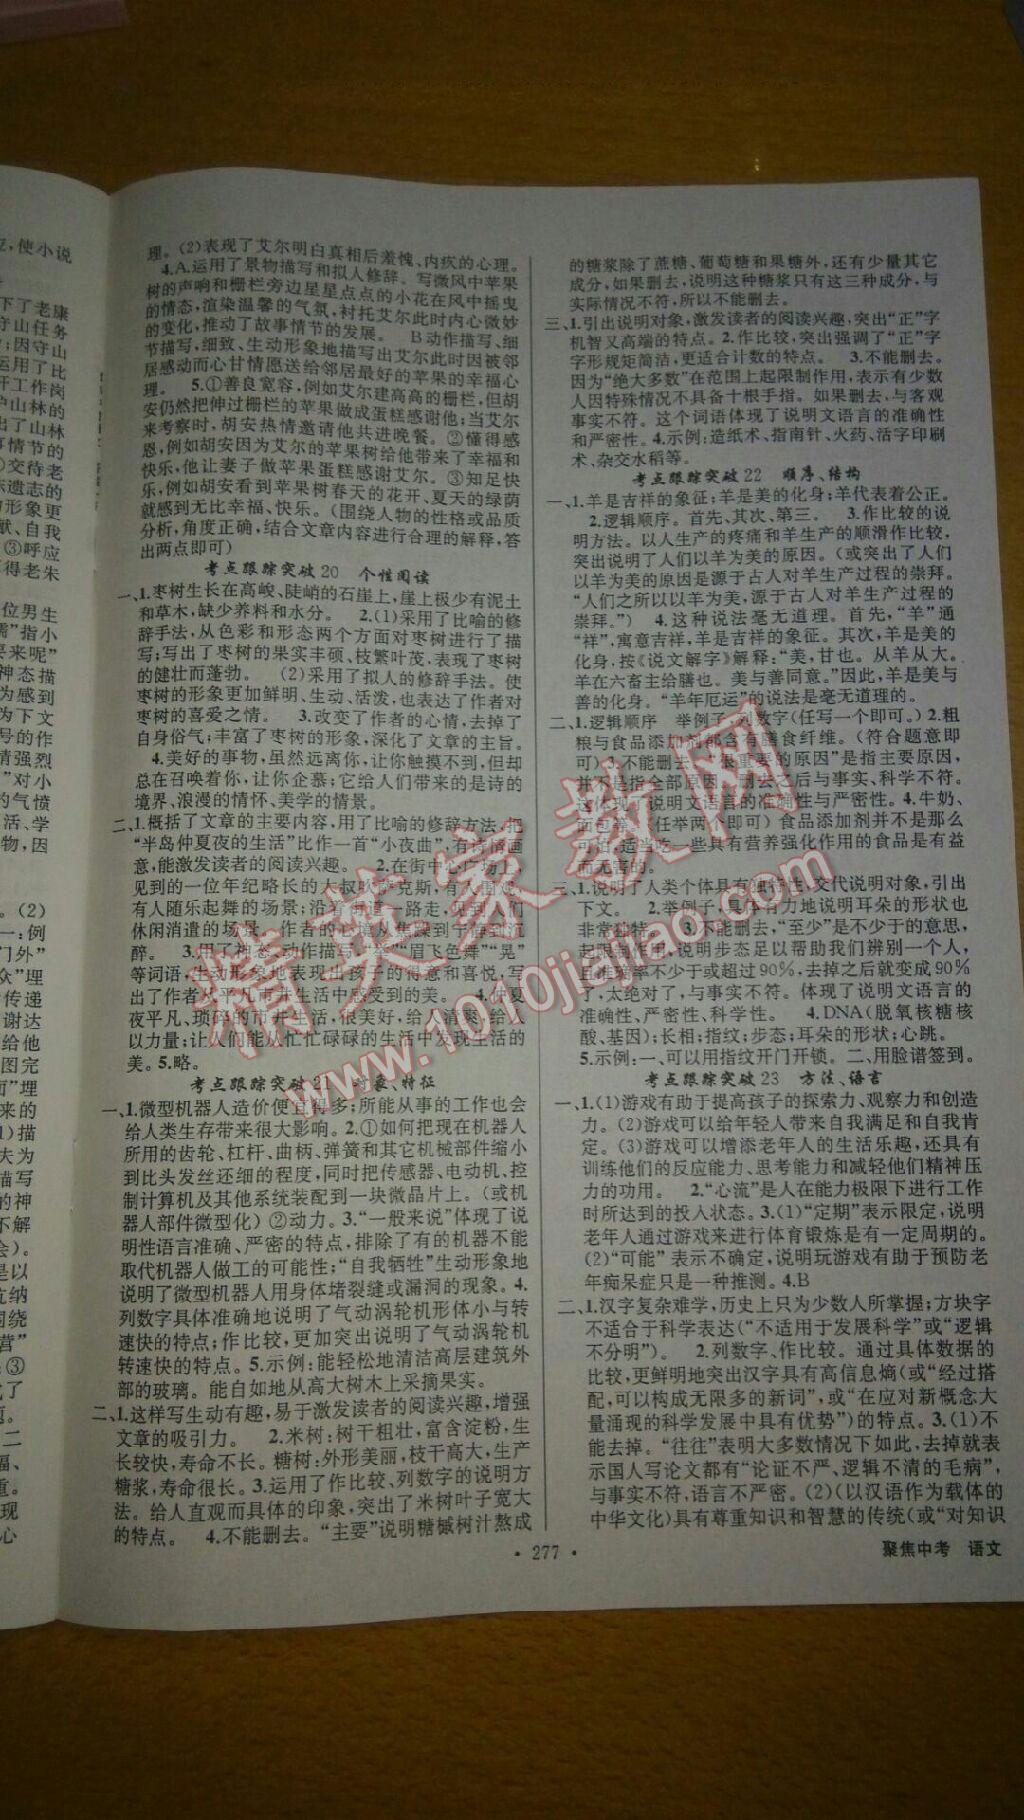 理。(2)表现了艾尔明白真相后羞愧、内疚的心理。
4.A.运用了景物描写和拟人修辞。写微风中苹果
树的声响和栅栏旁边星星点点的小花在风中摇曳
的情态,渲染温馨的气氛,衬托艾尔此时内心微妙
的变化,推动了故事情节的发展。 B动作描写、细
节描写,细致、生动形象地描写出艾尔此时因被邻
居感动而心甘情愿送给邻居最好的苹果的幸福心
理。 5.①善良宽容,例如艾尔建高高的栅栏,但胡
安仍然把伸过栅栏的苹果做成蛋糕感谢他;当艾尔
来考察时,胡安热情邀请他共进晚餐。②懂得感
恩,例如胡安因为艾尔的苹果树给他带来了幸福和
快乐,他让妻子做苹果蛋糕感谢艾尔。③知足快
乐,例如胡安看到苹果树春天的花开、夏天的绿荫
就感到无比幸福、快乐。(围绕人物的性格或品质
分析,角度正确,结合文章内容进行合理的解释,答
出两点即可)
考点跟踪突破20 个性阅读
一、1.枣树生长在高峻、陡峭的石崖上,崖上极少有泥土
和草木,缺少养料和水分。 2.(1)采用了比喻的修
辞手法,从色彩和形态两个方面对枣树进行了描
写;写出了枣树的果实丰硕、枝繁叶茂,表现了枣树
的健壮而蓬勃。 (2)采用了拟人的修辞手法。使
枣树的形象更加鲜明、生动、活泼,也表达了作者对
枣树的喜爱之情。 3.改变了作者的心情,去掉了
自身俗气;丰富了枣树的形象,深化了文章的主旨。
4.美好的事物,虽然远离你,让你触摸不到,但却
总在召唤着你,让你企慕;它给人们带来的是诗的
境界、浪漫的情怀、美学的情景。
二、1.概括了文章的主要内容,用了比喻的修辞方法,把
“半岛仲夏夜的生活”比作一首“小夜曲”,有诗情画
意,能激发读者的阅读兴趣。 2.在街中心广场上
见到的一位年纪略长的大叔吹萨克斯,有人围观,
有人随乐起舞的场景;沿着街道一路走,见到人们
休闲消遣的场景。作者的心境从焦躁到宁静到沉
醉。 3.用了神态、动作描写,“吹”“眉飞色舞”“晃”
等词语,生动形象地表现出孩子的得意和喜悦,写
出了作者从平凡市井生活中感受到的美。 4.仲夏
夜平凡、琐碎的市井生活,很美好,给人清爽,给人
以力量;让人们能从忙忙碌碌的生活中发现生活的
美。5.略。
考点跟踪突破21 对象、特征
一、1.微型机器人造价便宜得多;所能从事的工作也会
给人类生存带来很大影响。2.①如何把现在机器人
所用的齿轮、杠杆、曲柄、弹簧和其它机械部件缩小
到比头发丝还细的程度,同时把传感器、电动机、控
制计算机及其他系统装配到一块微晶片上。(或机
器人部件微型化)②动力。3.“一般来说”体现了说
明性语言准确、严密的特点,排除了有的机器不能
取代机器人做工的可能性;“自我牺牲”生动形象地
说明了微型机器人用身体堵裂缝或漏洞的现象。4.
列数字具体准确地说明了气动涡轮机形体小与转
速快的特点;作比较,更加突出说明了气动涡轮机
转速快的特点。5.示例:能轻松地清洁高层建筑外
部的玻璃。能自如地从高大树木上采摘果实。
二、1.这样写生动有趣,易于激发读者的阅读兴趣,增强
文章的吸引力。 2.米树:树干粗壮,富含淀粉,生
长较快,寿命不长。糖树:外形美丽,枝干高大,生产
糖浆,寿命很长。3.运用了作比较、列数字的说明方
法。给人直观而具体的印象,突出了米树叶子宽大
的特点。 4.不能删去。“主要”说明糖槭树汁熬成
的糖浆除了蔗糖、葡萄糖和果糖外,还有少量其它
成分,如果删去,说明这种糖浆只有这三种成分,与
实际情况不符,所以不能删去。
三、1.引出说明对象,激发读者的阅读兴趣,突出“正”字
机智又高端的特点。2.作比较,突出强调了“正”字
字形规矩简洁,更适合计数的特点。 3.不能删去。
因为“绝大多数”在范围上起限制作用,表示有少数
人因特殊情况不具备十根手指。如果删去,与客观
事实不符。这个词语体现了说明文语言的准确性
和严密性。4.示例:造纸术、指南针、火药、活字印刷
术、杂交水稻等。
考点跟踪突破22 顺序、结构
一、1.羊是吉祥的象征;羊是美的化身;羊代表着公正。
2.逻辑顺序。首先、其次、第三。 3.作比较的说
明方法。以人生产的疼痛和羊生产的顺滑作比较,
突出说明了人们以羊为美的原因。(或突出了人们
以羊为美的原因是源于古人对羊生产过程的崇拜。
“人们之所以以羊为美,源于古人对羊生产过程的
崇拜。”) 4.这种说法毫无道理。首先,“羊”通
“祥”,寓意吉祥,羊是吉祥的象征。其次,羊是美的
化身,按《说文解字》解释:“美,甘也。从羊从大。
羊在六畜主给膳也。美与善同意。”因此,羊是美与
善的化身。“羊年厄运”的说法是毫无道理的。
二、1.逻辑顺序 举例子、列数字(任写一个即可。)2.粗
粮与食品添加剂都含有膳食纤维。(符合题意即
可)3.不能删去。“很重要的原因”是指主要原因,
并不是指全部原因,删去之后与事实、科学不符。
这体现了说明文语言的准确性与严密性。4.牛奶、
面包等。(任举两个即可)食品添加剂并不是那么
可怕,适当吃一些具有营养强化作用的食品是有益
而无害的。
三、1.说明了人类个体具有独特性,交代说明对象,引出
下文。 2.举例子,具体有力地说明耳朵的形状也
非常独特。 3.不能删去,“至少”是不少于的意思,
起限制作用,说明步态足以帮助我们辨别一个人,
且准确率不少于或超过90%,去掉之后就变成90%
了,太绝对了,与事实不符。体现了说明文语言的
准确性、严密性、科学性。 4.DNA(脱氧核糖核
酸、基因);长相;指纹;步态;耳朵的形状;心跳。
5.示例:一、可以用指纹开门开锁。二、用脸谱签到。
考点跟踪突破23 方法、语言
一、1.(1)游戏有助于提高孩子的探索力、观察力和创造
力。(2)游戏可以给年轻人带来自我满足和自我肯
定。(3)游戏可以增添老年人的生活乐趣,还具有
训练他们的反应能力、思考能力和减轻他们精神压
力的功用。 2.“心流”是人在能力极限下进行工作
时所达到的投入状态。3.(1)“定期”表示限定,说明
老年人通过游戏来进行体育锻炼是有一定周期的。
(2)“可能”表示不确定,说明玩游戏有助于预防老
年痴呆症只是一种推测。4.B
二、1.汉字复杂难学,历史上只为少数人所掌握;方块字
不适合于科学表达(“不适用于发展科学”或“逻辑
不分明”)。 2.列数字、作比较。通过具体数据的
比较,更鲜明地突出汉字具有高信息熵(或“经过搭
配,可以构成无限多的新词”,或“在应对新概念大
量涌现的科学发展中具有优势”)的特点。3.(1)不
能去掉。“往往”表明大多数情况下如此,去掉就表
示国人写论文都有“论证不严、逻辑不清的毛病”,
与事实不符,语言不严密。(2)(以汉语作为载体的
中华文化)具有尊重知识和智慧的传统(或“对知识
· 277 ·
聚焦中考 语文
精英家教网
www.1010jiajiao.com